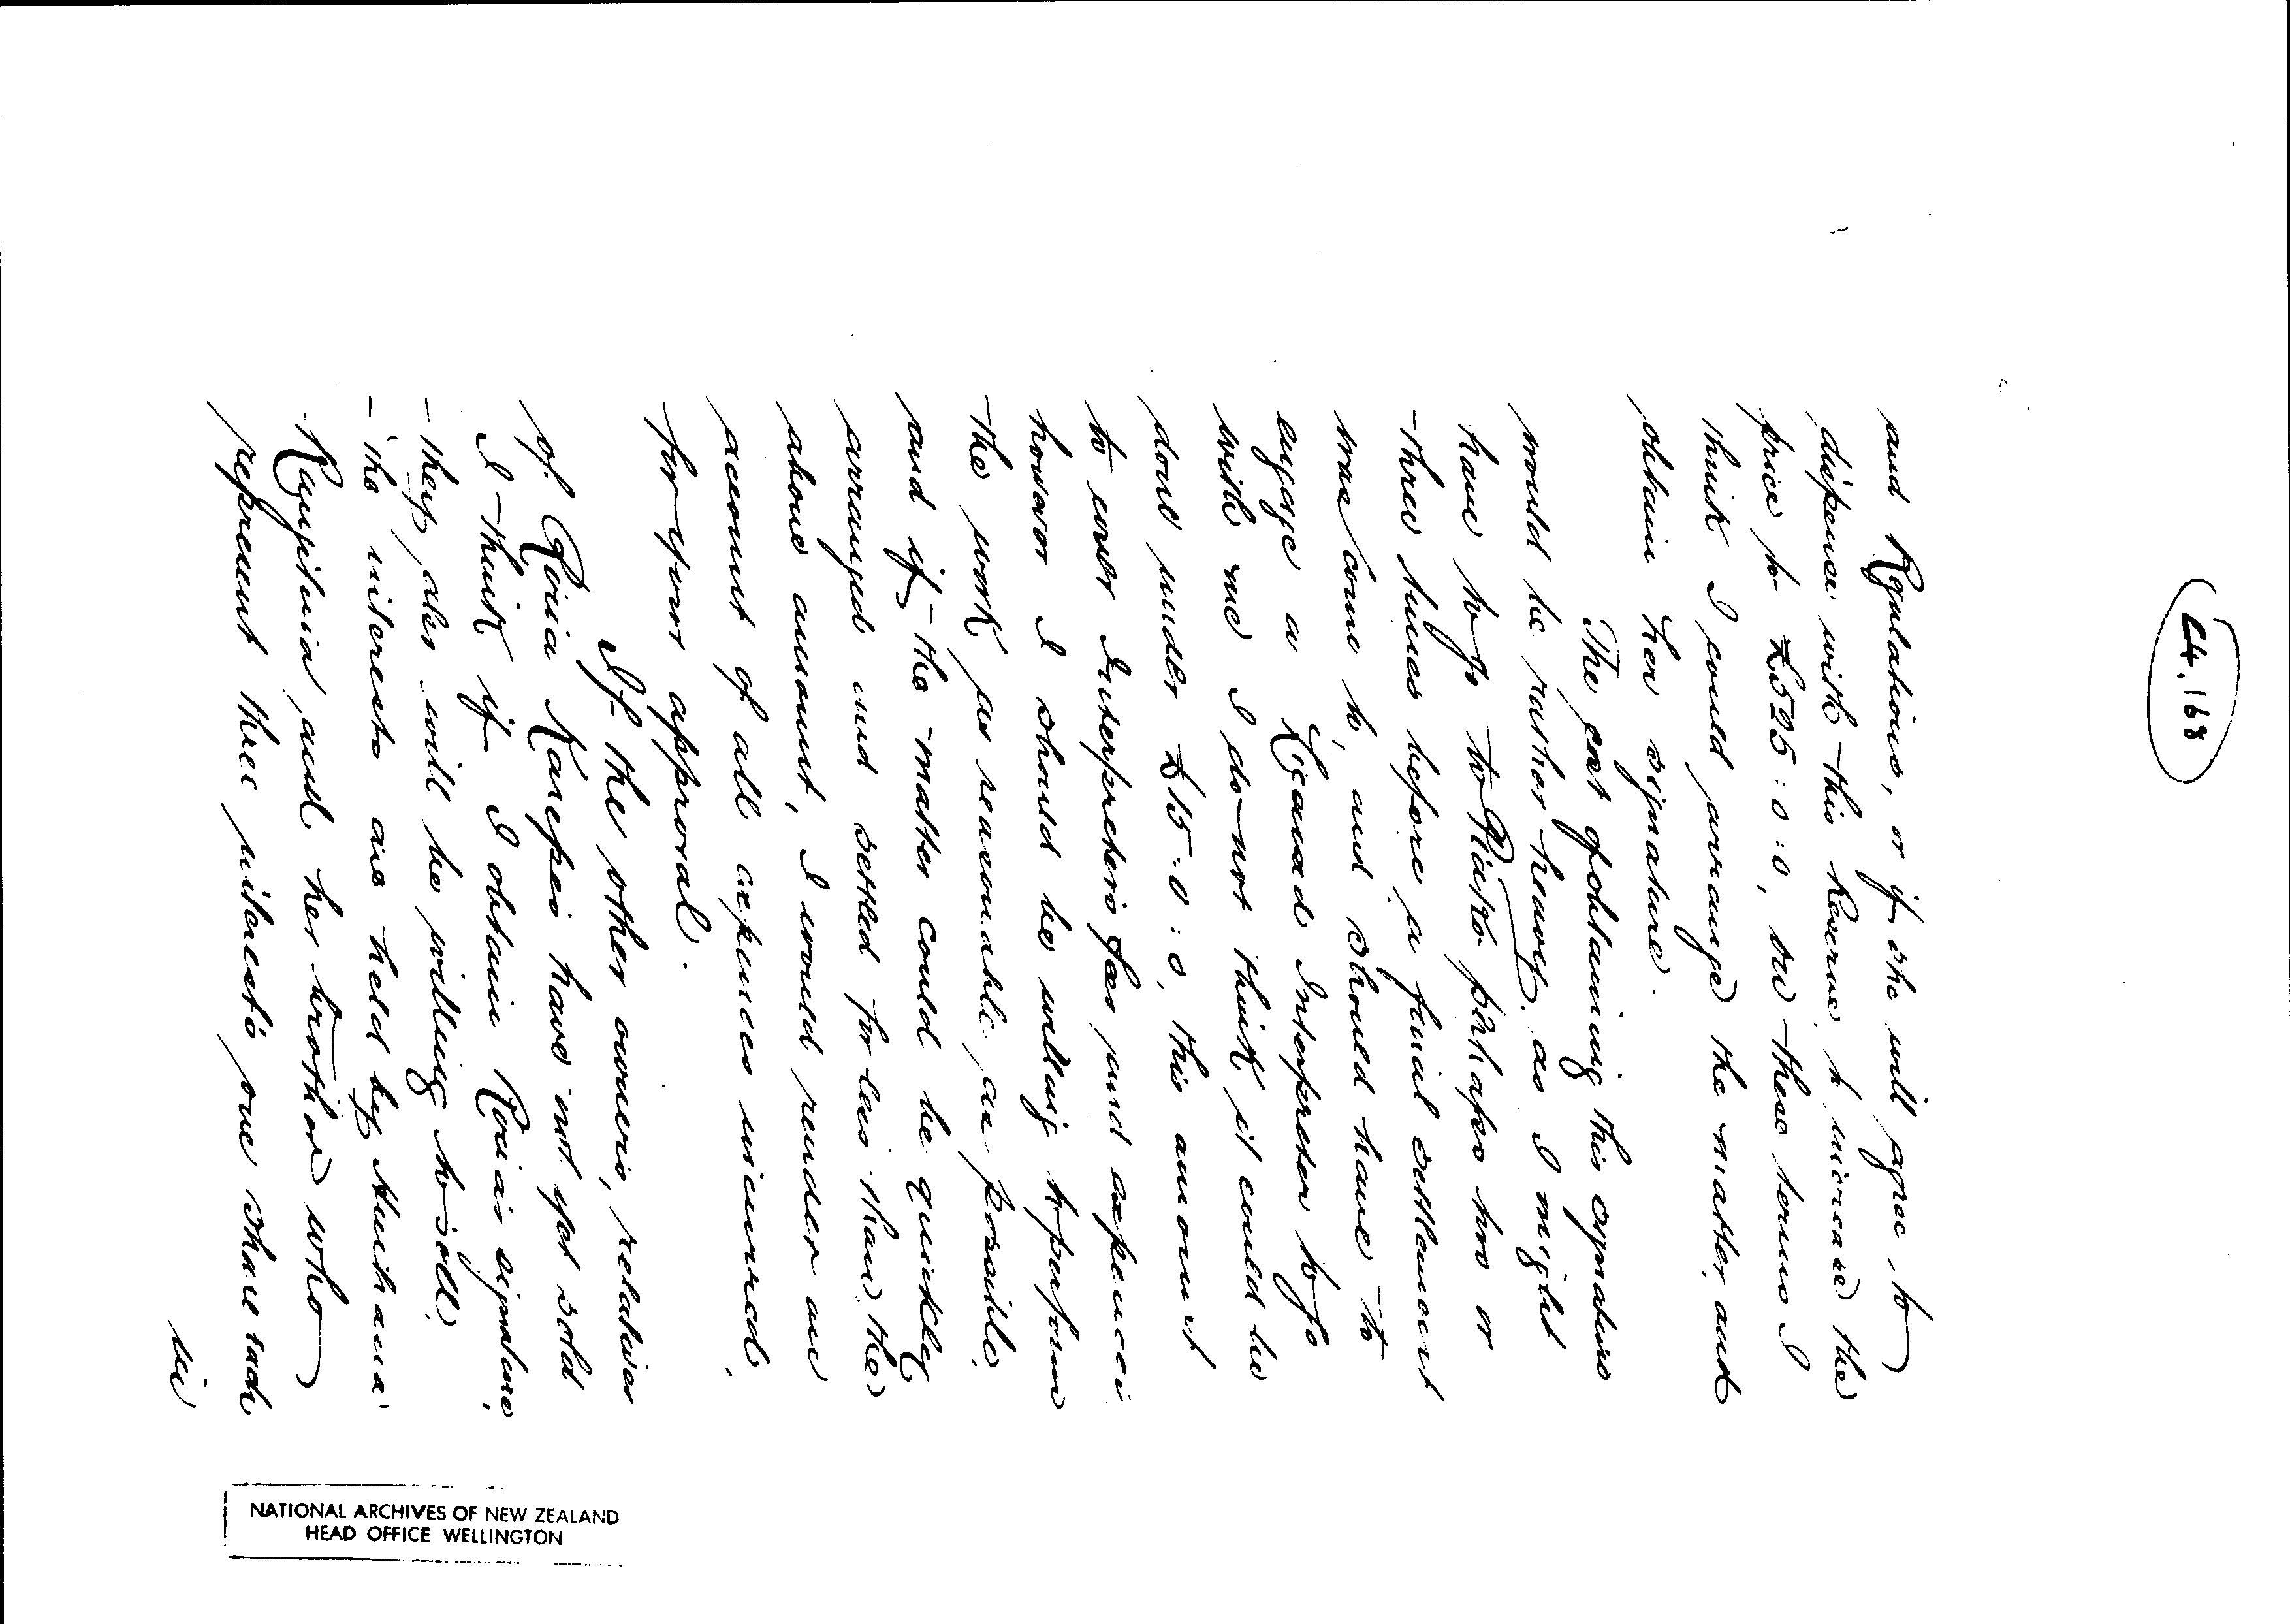 24.168
and Regulations, or if she will agree to
dispense with this Reserve, & increase the
price to £525:0:0, on these terms I
think I could arrange the matter and
obtain her signature.
The cost of obtaining this signature
would be rather heavy as I might
have to go to Piako perhaps two or
three times before a final settlement
was come to, and should have to
engage a Licensed Interpreter to go
with me I do not think it could be
done under £15:0:0, this amount
to cover Interpreters fees and expences
however I should be willing to perform
the work as reasonable as possible,
and if the matter could be quickly
arranged and settled for less than the
above amount, I would render an
account of all expences incurred,
for your approval.
If the other owners, relatives
of Roia Karepe have not yet sold
I think if I obtain Roia's signature,
they also will be willing to sell,
the interests are held by
and her brother who
represent three interests one share each
NATIONAL ARCHIVES OF NEW ZEALAND
HEAD OFFICE WELLINGTON